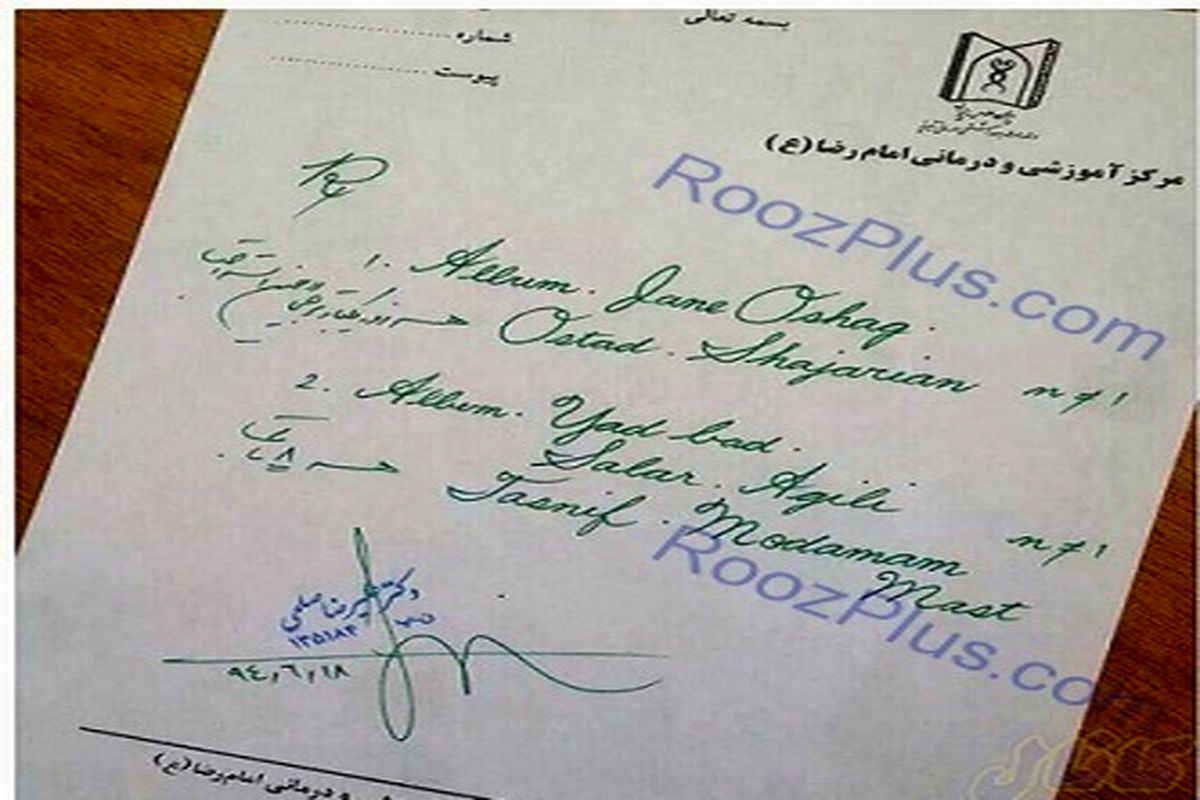 بسمه تعالی
شماره
پیوست
مرکز آموزشی و درمانی امام رضا (ع)
RoozPlus.com
1. Album. Jane Oshag.
Ostad. Shajarian n≠1
2. Album. Yad bad.
Salar. Agili
هر ۸
Tasnif. Modamam n≠1
Mast
RoozPlus.com
دکتر علیرضا صلحی
۱۳۵۱۸۴
۹٤٫٦٫۱۸
و درمانی امام رضا (ع)